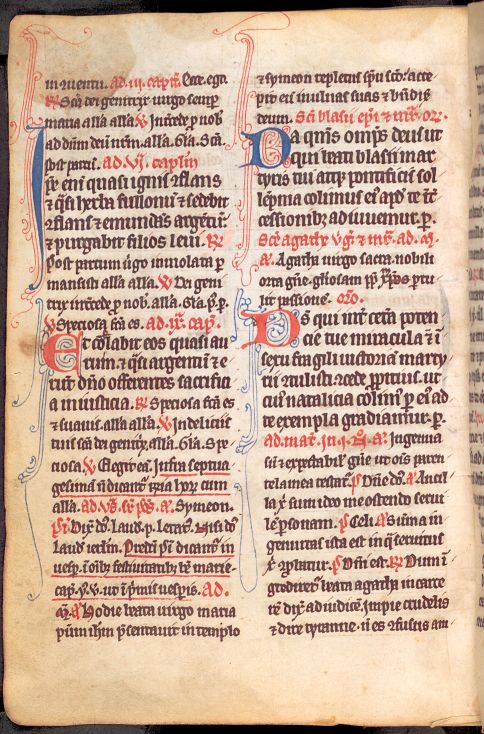 inuentu. ad .iii. capłm. Ecce ego.
℟ Scā dei genitrix uirgo semꝑ
maria alla alla ℣ Intercede ꝓ nob
ad dūm deū nr̄m. alla. Gła. Scā.
post partū. ad vj. caplm
Ipse eni quasi ignis ɔflans
⁊ qͣsi herba fullonū ⁊ sedebit
ɔflans ⁊ emundās argentū.
⁊ purgabit filios leui. ℟
Post partum ůgo inuiolata ꝑ
mansisti alla alla. ℣ Dei geni
trix intercede ꝓ nob. alla. Gła. p̄. p̄.
℣ Speciosa fc̄a es. ad .ix. cap̄.
Et colabit eos quasi au
rum. ⁊ qͣsi argentū ⁊ e
rūt dn̄o offerentes sacrifici
a in iusticia. ℟ Speciosa fc̄a es
⁊ suauis. alla alla. ℣ In deliciis
tuis scā dei genitrix. alla. Gła. Spe
ciosa. ℣ Elegit eā. Infra septua
gesimā n̄ dicant᷑ cum
alla. ad Symeon.
Laud. p. Letat᷑.
laud Predc̄i dicant᷑ in
uesꝑ.
cap. p. ℣. ut ī pͥmis uesꝑis. ad.
a Hodie beata uirgo maria
pūm ihm p̄sentauit in templo
⁊ symeon repletus spū scō: acce
pit eū in ulnas suas ⁊ bn̄dix
deum. Sc̄i blasii epi ⁊ mr̄. or̄.
Da qm̄s omps deus ut
qui beati blasii mar
tyris tui atqꝫ pontificis sol
lēpnia colimus eiꝰ apd̛ te ītͨ
cessionibꝫ adiuuemur. p.
Scē agathe ůg̛ ⁊ mr̄. ad.
a. Agatha uirgo sacra nobili
orta gn̄e. gliosam
lit passione. or̄o.
Ds̄ qui int̛ cet̛a poten
cie tue miracula ⁊ ī
sexu fragili uictoriā marty
rii ɔtulisti. ɔcede ꝓpitius. ut
cuiꝰ natalicia colimꝰ ꝑ eiꝰ ad
te exempla gradiamur. p.
ad mat̛. In .i. a Ingenua
sū ⁊ expectabil̛ gn̄e ut ōis paren
tela mea testat᷑. p̄ Dn̄e dn̄. a. Ancil
la x̄ sum ideo me ostendo serui
lē ꝑsonam. p̄ Celi. a Sūma in
genuitas ista est in q̄ seruitus
x̄ ꝯprobat᷑. p̄ Dn̄i est. ℟ Dum ī
gredet᷑ beata agatha in carce
rē dix̄ ad iudicē. Impie crudelis
⁊ dire tyranne. n̄ es ɔfusus am